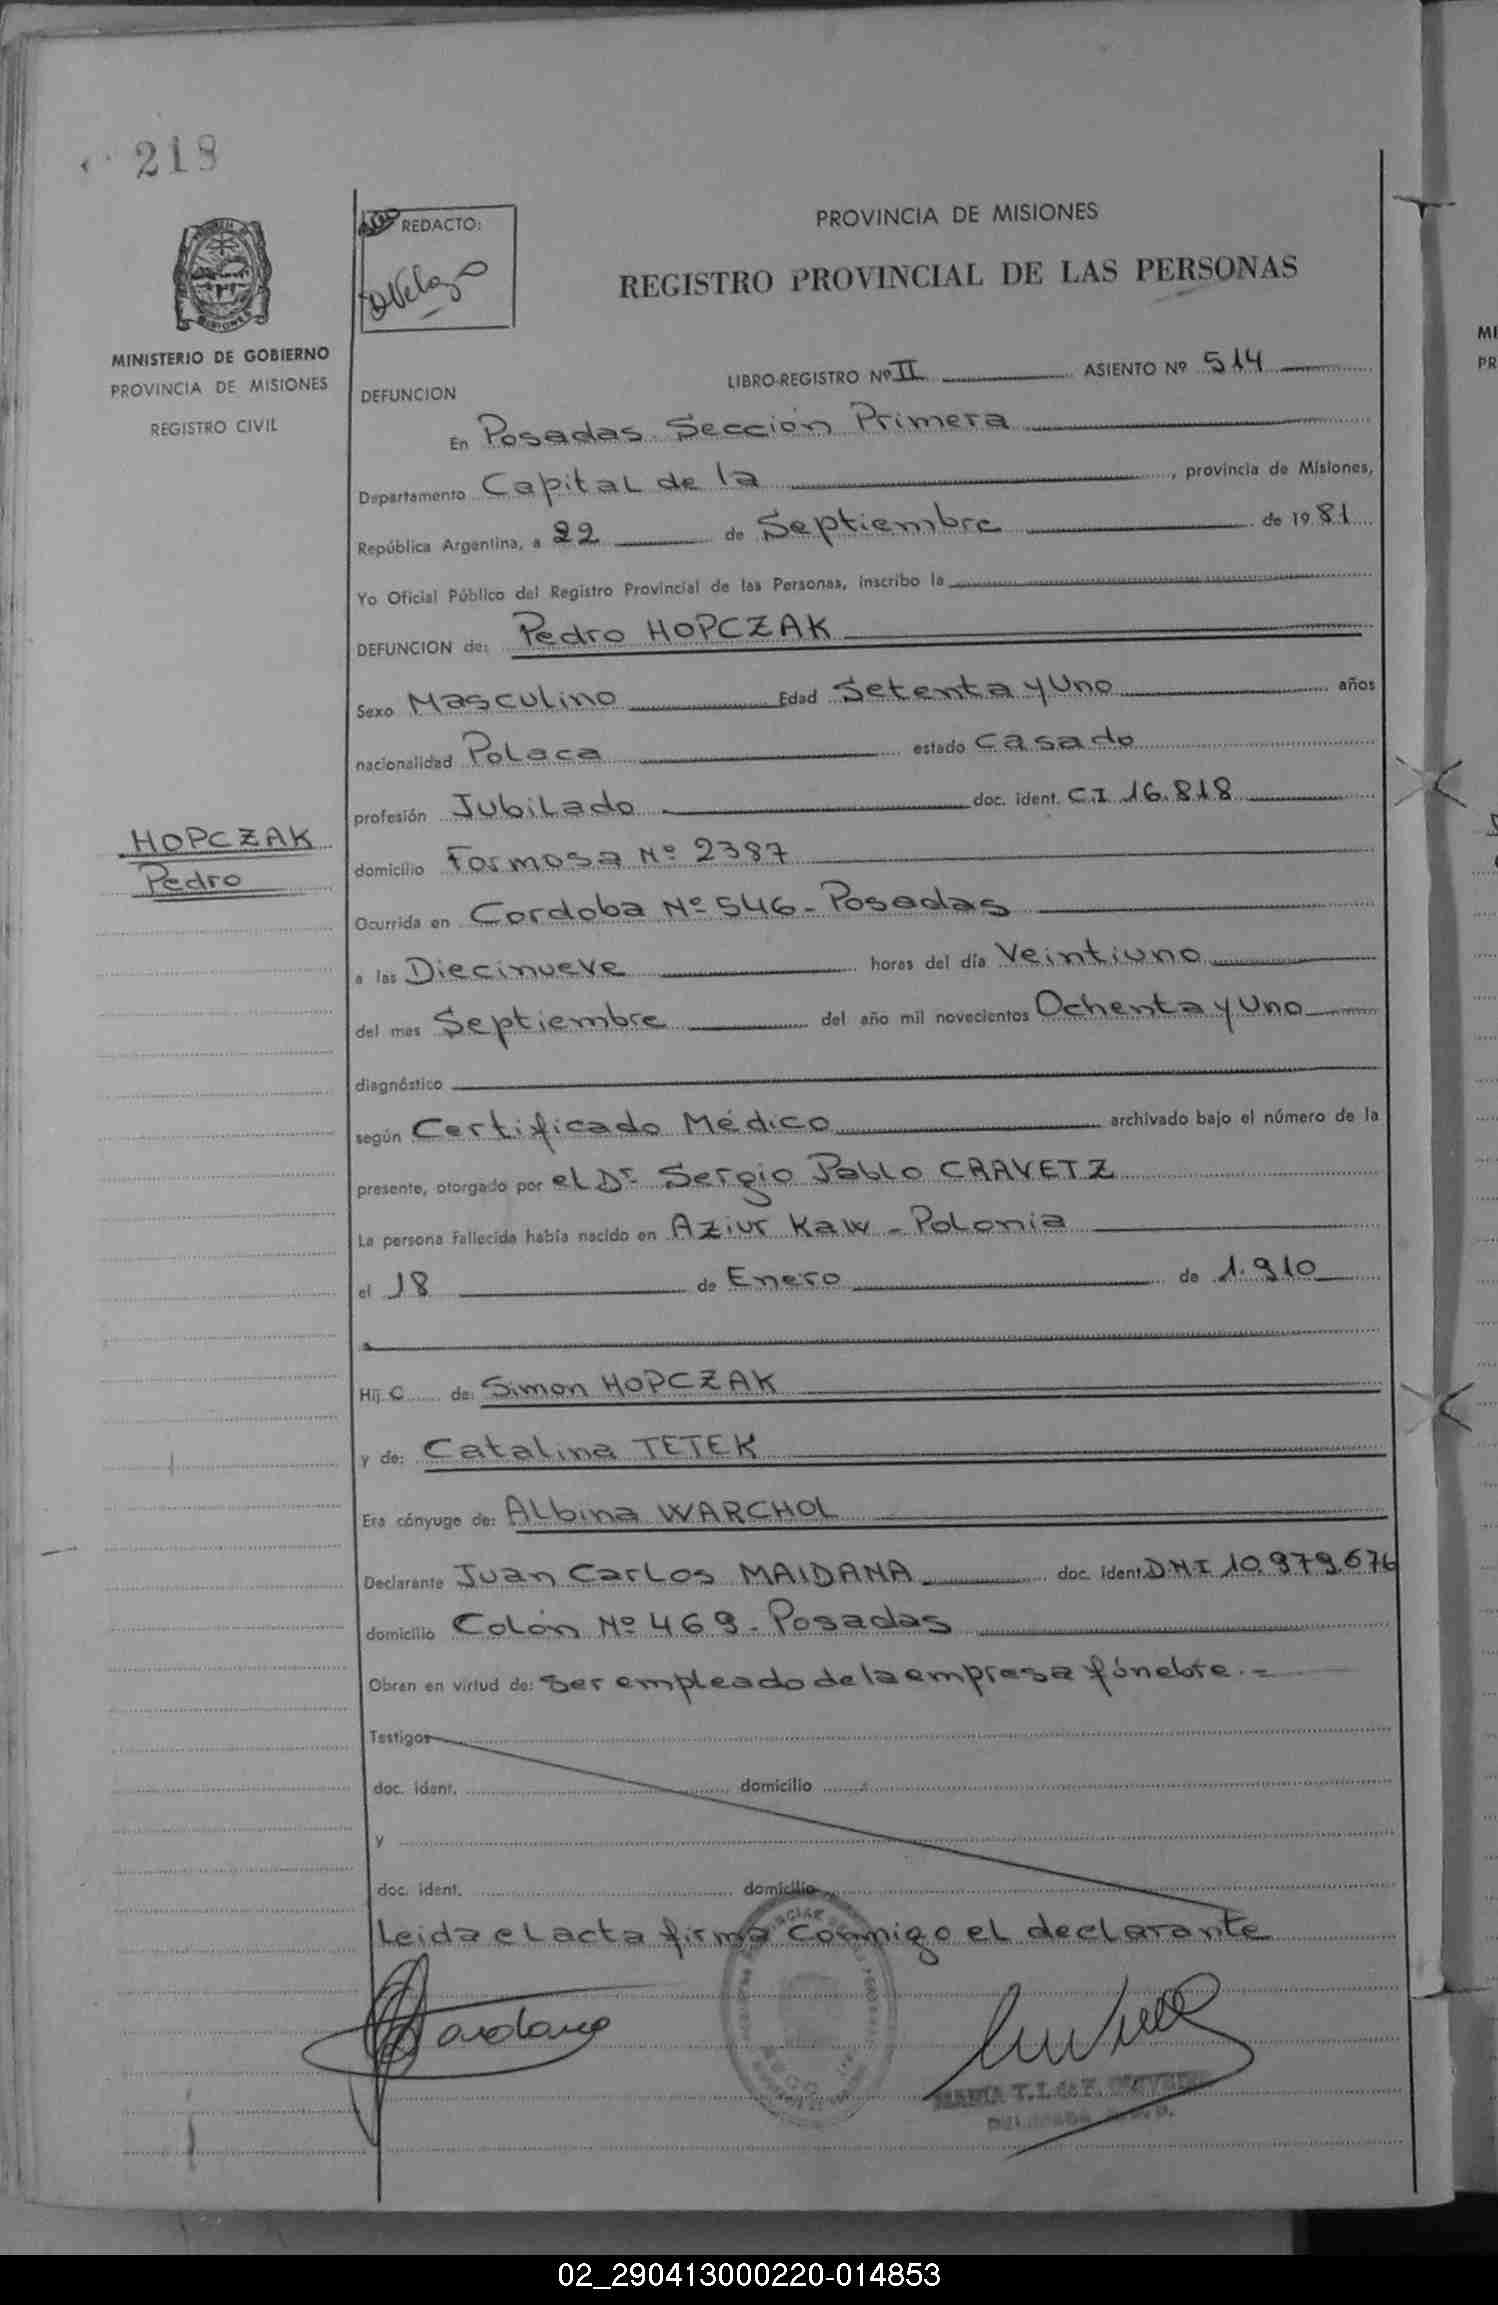 218
REDACTO:
PROVINCIA DE MISIONES
REGISTRO PROVINCIAL DE LAS PERSONAS
MISIONES
MINISTERIO DE GOBIERNO
PROVINCIA DE MISIONES
REGISTRO CIVIL
LIBRO-REGISTRO Nº II ASIENTO Nº 514
DEFUNCION
En Posadas Sección Primera
Departamento Capital de la, provincia de Misiones,
República Argentina, a 22 de Septiembre de 1981
Yo Oficial Público del Registro Provincial de las Personas, inscribo la
DEFUNCION de: Pedro HOPCZAK
Sexo Masculino Edad Setenta y Uno años
nacionalidad Polaca estado Casado
profesión Jubilado doc. ident. C.I 16.818
HOPCZAK
Pedro
domicilio Formosa Nº 2387
Ocurrida en Cordoba Nº 546 - Posadas
a las Diecinueve horas del día Veintiuno
del mes Septiembre del año mil novecientos Ochenta y Uno
diagnóstico
según Certificado Médico archivado bajo el número de la
presente, otorgado por el Dr. Sergio Pablo CRAVETZ
La persona fallecida había nacido en Aziur Kaw - Polonia
el 18 de Enero de 1.910
Hij o de: Simon HOPCZAK
y de: Catalina TETEK
Era cónyuge de: Albina WARCHOL
Declarante Juan Carlos MAIDANA doc. ident. D.N.I 10.979.676
domicilio Colón Nº 469 - Posadas
Obran en virtud de: Ser empleado de la empresa fúnebre.=
Testigos
doc. ident. domicilio
y
doc. ident. domicilio
Leida el acta firma conmigo el declarante
MARIA T. I. de F.
02_290413000220-014853